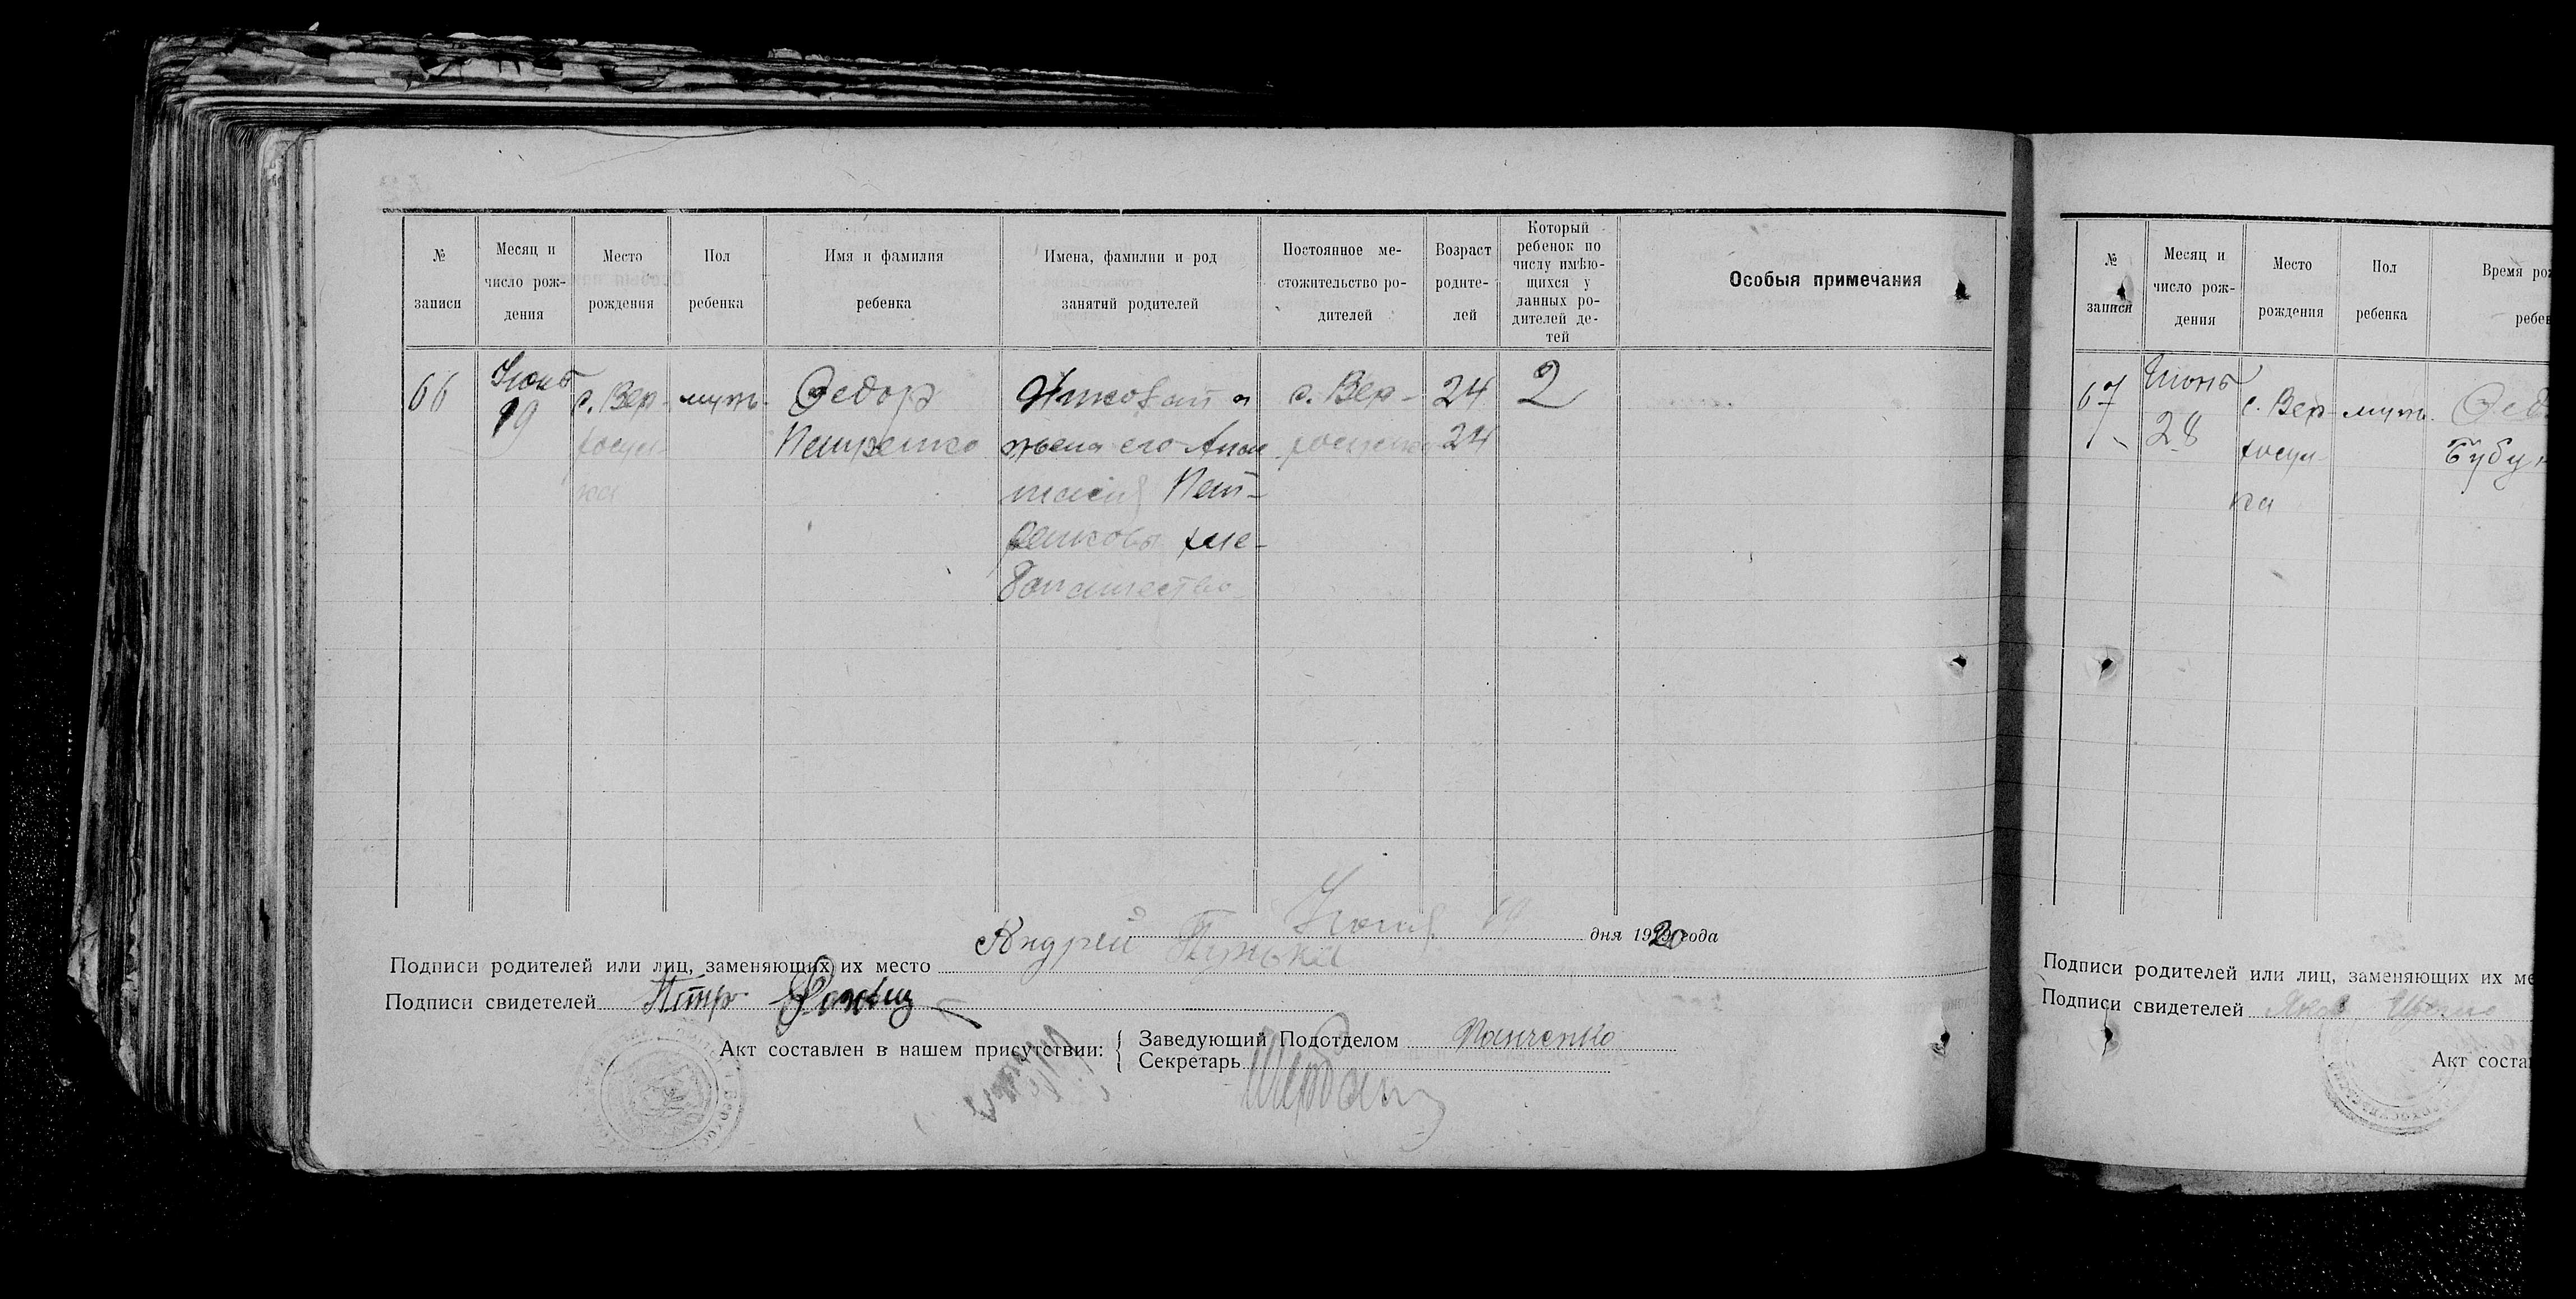 № записи
Месяц и число рож-дения
Место рождения
Пол ребенка
Имя и фамилия ребенка
Имена, фамилии и род занятий родителей
Постоянное ме-стожительство ро-дителей
Возраст родите-лей
Который ребенок по числу имѣю-щихся у данных ро-дителей де-тей
Особыя примечания
66
Июнь
19
с. Вер-
хосул-
ка
муж.
Федор
Петренко
Яков
жена его
Пет-
ренковы хле-
бопашество
с. Вер-
хосулка
24
24
2
Июня 19 дня 1920 года
Подписи родителей или лиц, заменяющих их место Андрей
Подписи свидетелей Петр
Акт составлен в нашем присутствии:
Заведующий Подотделом Панченко
Секретарь
№ записи
Месяц и число рож-дения
Место рождения
Пол ребенка
Время рож
ребен
67
Июнь
28
с. Вер-
хосул-
ка
муж.
Фед
Бубун
Подписи родителей или лиц, заменяющих их ме
Подписи свидетелей
Акт соста